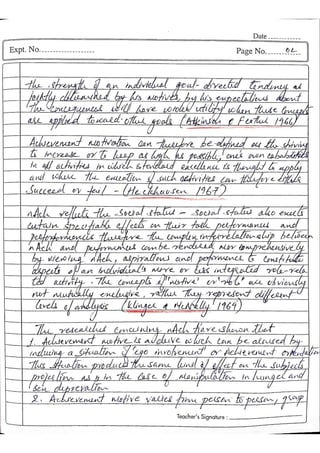 Date
Expt. No.
Page No. 02
the strength of an individual goal-directed tendency as
jointly determined by his motives, by his expectations about
the consequences will have wider utility when these concepts
are applied toward other goals (Atkinson & 1966)
Achievement motivation can therefore be defined as the striving
to increase or to keep as high as possible, one's own capabilities
in all activities in which standard excellence is thought to apply
and where the execution of such activities can therefore either
succeed or fail - (Heckhausen 1967)
nAch reflects the social status - social status also exects
certain specifiable effects on their task performances and
performances therefore the complex interrelationship between
nAch and performances can be rendered more comprehensively
by viewing nAch, aspirations and performance to constitute
aspects of an individual's more or less integrated role-rela
ted activity. The concepts of 'motive' or 'role' are obviously
not mutually exclusive, rather they represent different
levels of analysis (Klinger & McNelly 1969)
The researches concerning nAch have shown that
1. Achievement motive is a drive which can be aroused by
inducing a situation of 'ego involvement' or achievement orientation
This situation produces the same kind of effect on the subjects
projection as in the case of manipulation in hunger and
sex deprevation
2. Achievement motive varies from person to person, group
Teacher's Signature :